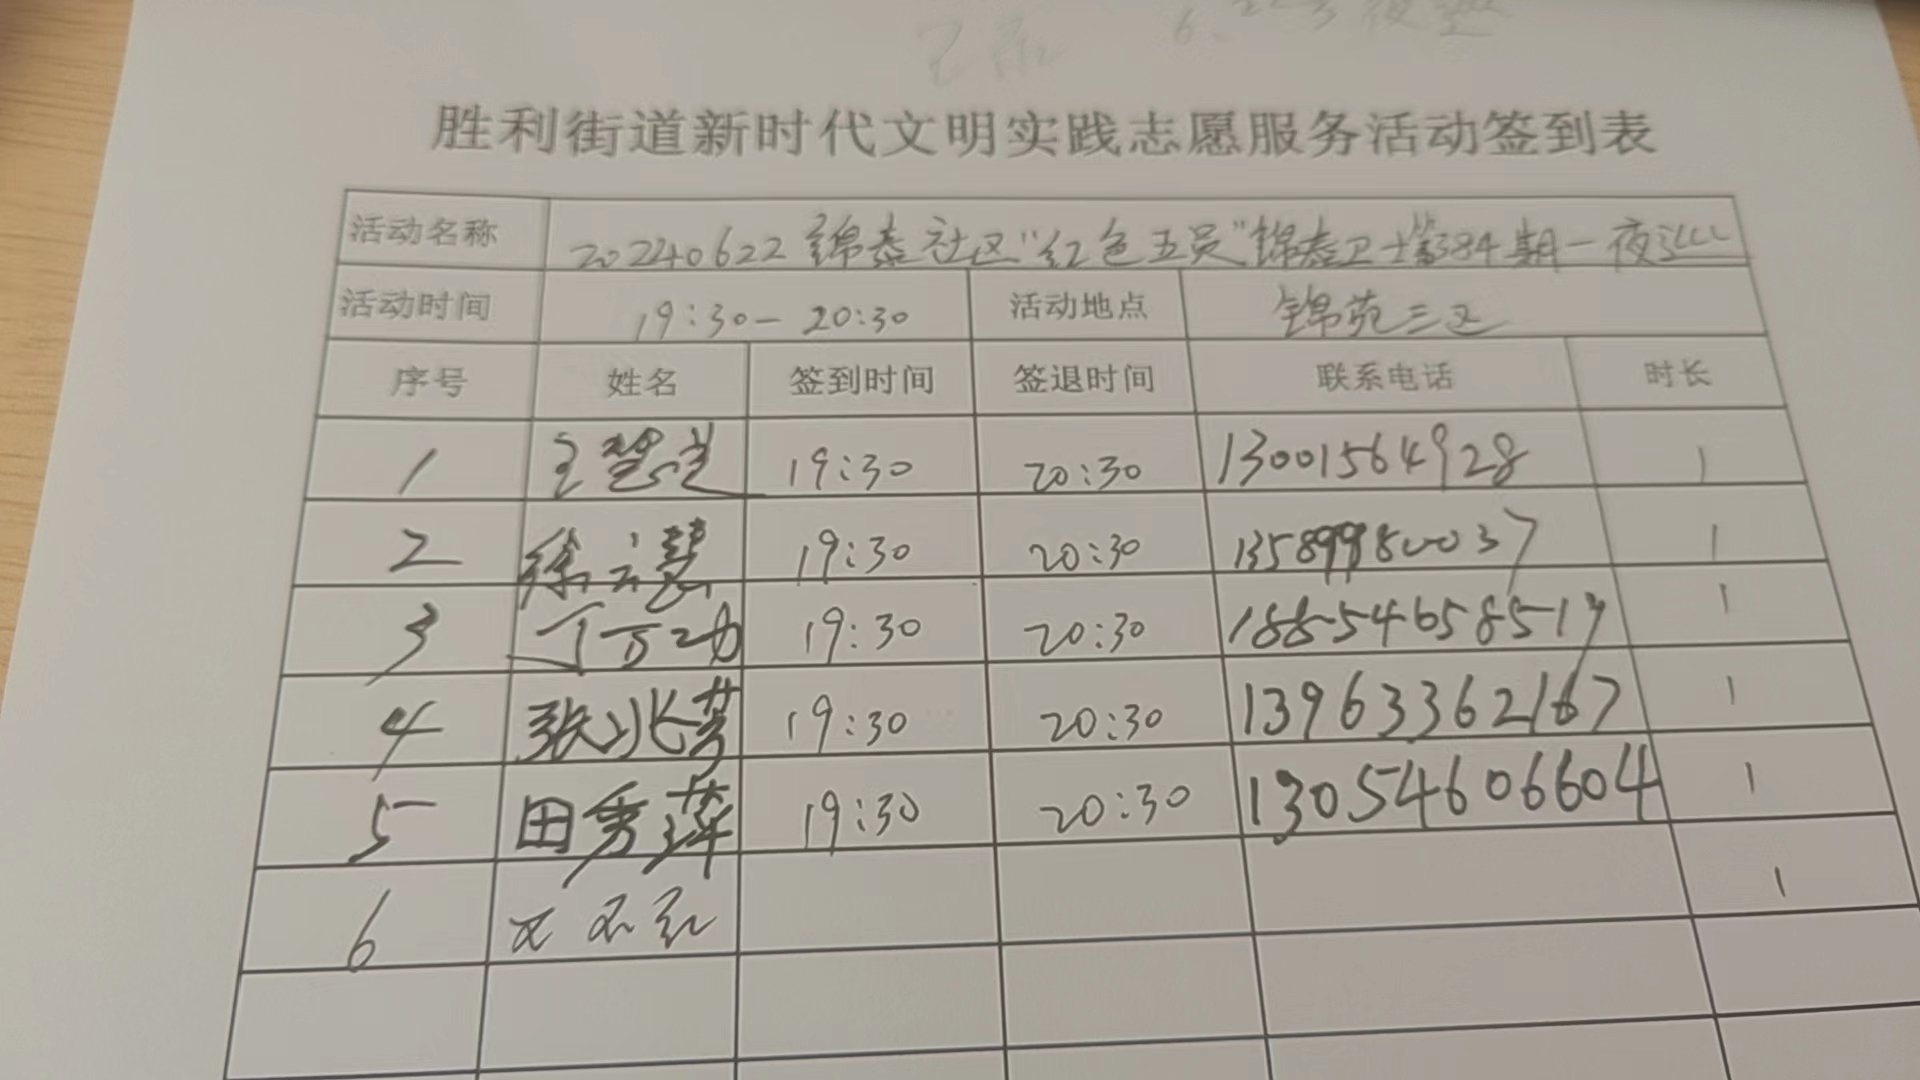 胜利街道新时代文明实践志愿服务活动签到表
活动名称 20240622锦泰社区"红色五员"锦泰卫士第384期一夜巡
活动时间 19:30-20:30 活动地点 锦苑三区
序号 姓名 签到时间 签退时间 联系电话 时长
1 王慧兰 19:30 20:30 13001564928 1
2 徐云慧 19:30 20:30 13589980037 1
3 丁万功 19:30 20:30 1
4 张兆芳 19:30 20:30 13963362167 1
5 田秀萍 19:30 20:30 13054606604 1
6 1